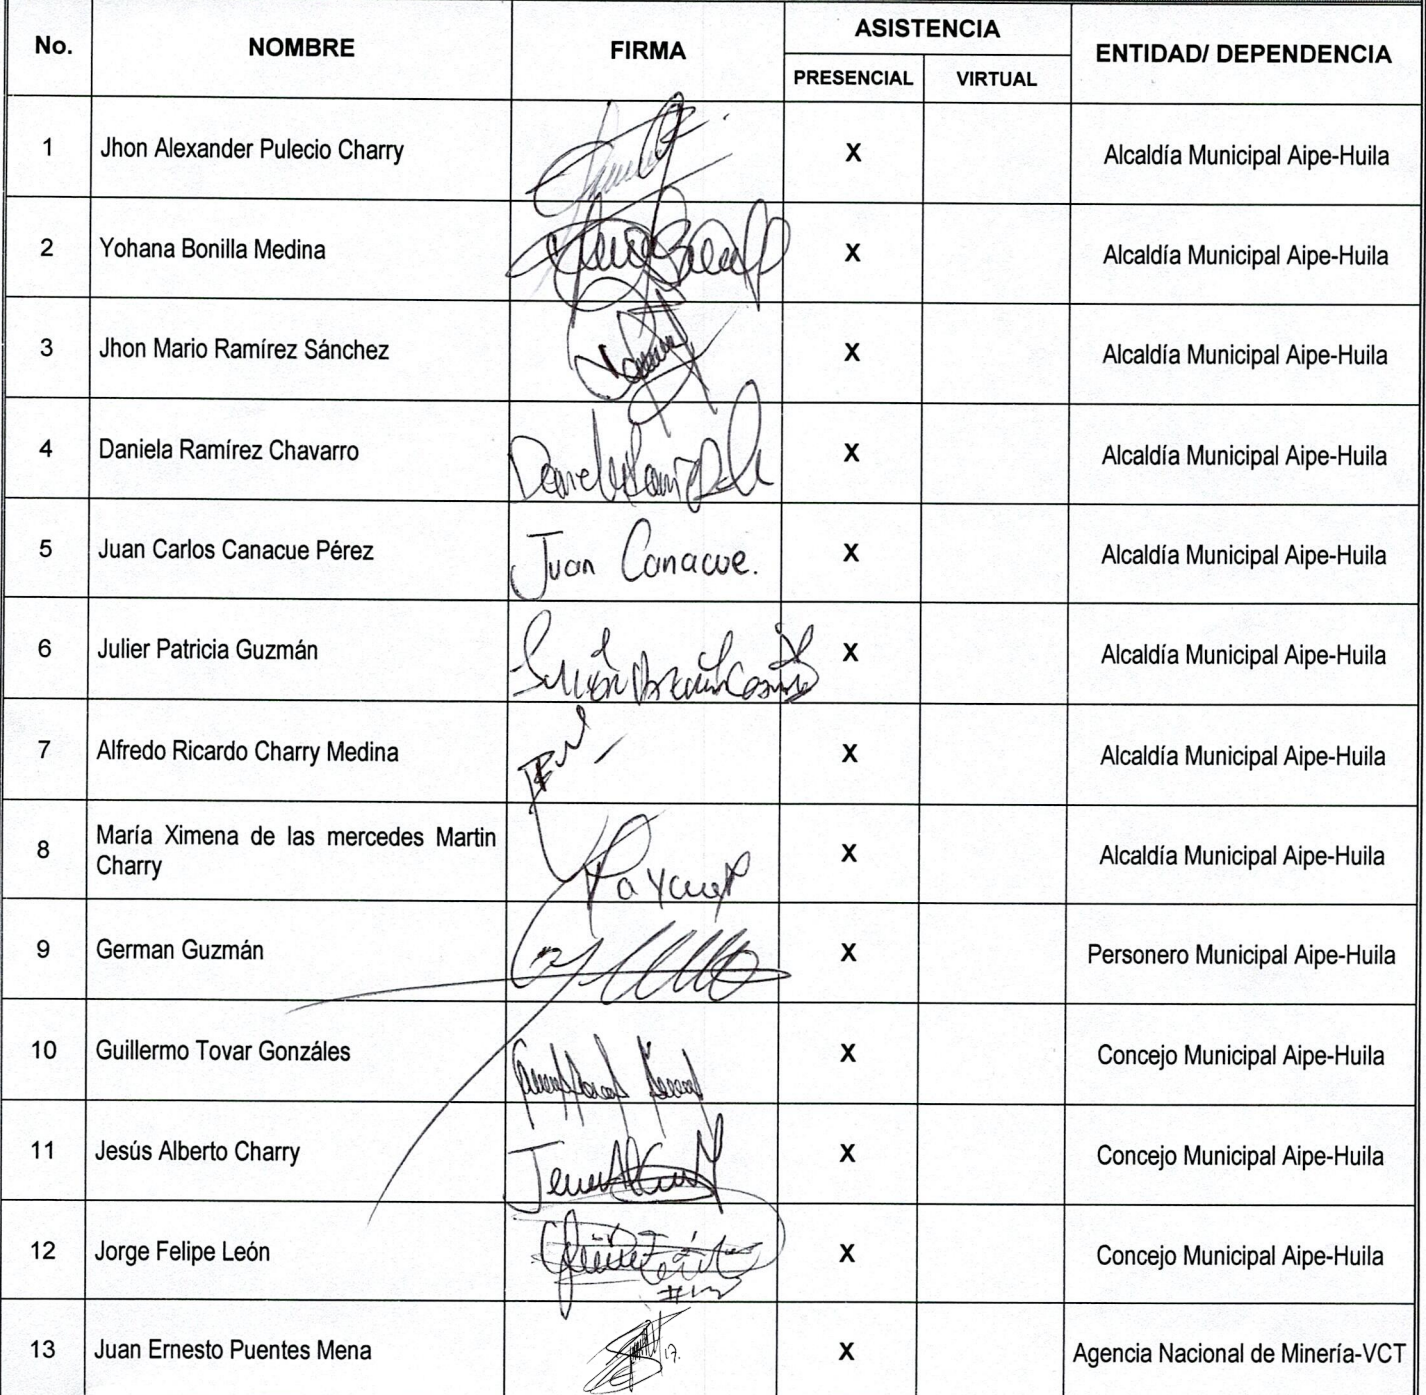 No. NOMBRE FIRMA ASISTENCIA ENTIDAD/ DEPENDENCIA
PRESENCIAL VIRTUAL
1 Jhon Alexander Pulecio Charry X Alcaldía Municipal Aipe-Huila
2 Yohana Bonilla Medina X Alcaldía Municipal Aipe-Huila
3 Jhon Mario Ramírez Sánchez X Alcaldía Municipal Aipe-Huila
4 Daniela Ramírez Chavarro X Alcaldía Municipal Aipe-Huila
5 Juan Carlos Canacue Pérez Juan Canacue. X Alcaldía Municipal Aipe-Huila
6 Julier Patricia Guzmán X Alcaldía Municipal Aipe-Huila
7 Alfredo Ricardo Charry Medina X Alcaldía Municipal Aipe-Huila
8 María Ximena de las mercedes Martin
Charry X Alcaldía Municipal Aipe-Huila
9 German Guzmán X Personero Municipal Aipe-Huila
10 Guillermo Tovar Gonzáles X Concejo Municipal Aipe-Huila
11 Jesús Alberto Charry X Concejo Municipal Aipe-Huila
12 Jorge Felipe León X Concejo Municipal Aipe-Huila
13 Juan Ernesto Puentes Mena X Agencia Nacional de Minería-VCT